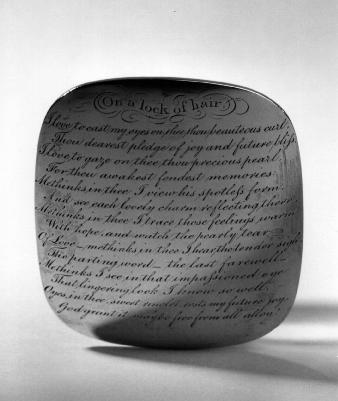 On a lock of hair
I love to cast my eyes on thee, thou beauteous curl,
Thou dearest pledge of joy and future bliss,
I love to gaze on thee, thou precious pearl,
For thou awakest fondest memories.
Methinks in thee I view his spotless form.
And see each lovely charm reflecting there
Methinks in thee I trace those feelings warm
With hope, and watch the pearly tear
O! Love_ methinks in thee I hear the tender sigh
The parting word_ the last farewell_
Methinks I see in that impassioned eye
That lingering look I know so well,
O yes, in thee, sweet rests my future joy.
God grant it may be free from all alloy!